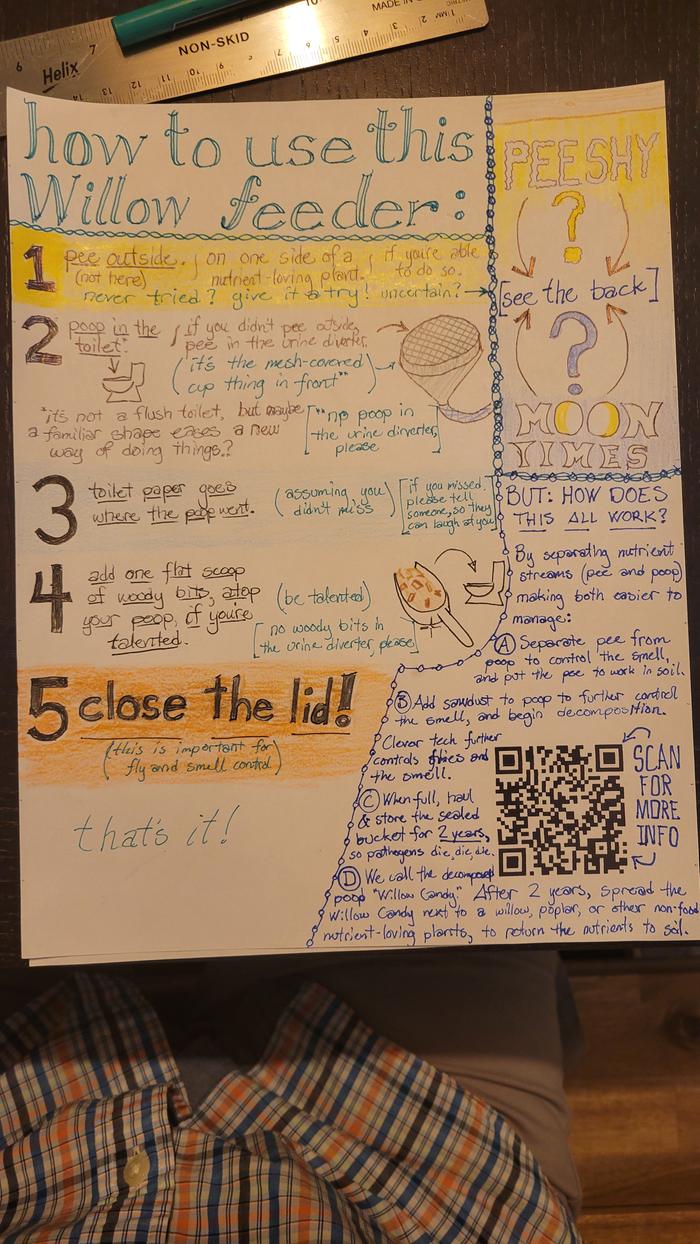 Helix
NON-SKID
MADE IN
how to use this
Willow feeder:
1 pee outside. on one side of a if you're able
(not here) nutrient-loving plant. to do so.
never tried? give it a try! uncertain?
2 poop in the
toilet*.
if you didn't pee outside,
pee in the urine diverter.
(it's the mesh-covered
cup thing in front**)
*it's not a flush toilet, but maybe
a familiar shape eases a new
way of doing things.?
[**no poop in
the urine dirverter,
please]
3 toilet paper goes
where the poop went.
(assuming you
didn't miss)
[if you missed,
please tell
someone, so they
can laugh at you]
4 add one flat scoop
of woody bits, atop
your poop, if you're
talented.
(be talented)
[no woody bits in
the urine diverter, please]
5 close the lid!
(this is important for
fly and smell control)
that's it!
PEE SHY
?
[see the back]
?
MOON
TIMES
BUT: HOW DOES
THIS ALL WORK?
By separating nutrient
streams (pee and poop)
making both easier to
manage:
A Separate pee from
poop to control the smell,
and put the pee to work in soil.
B Add sawdust to poop to further control
the smell, and begin decomposition.
Clever tech further
controls flies and
the smell.
C When full, haul
& store the sealed
bucket for 2 years,
so pathogens die, die, die.
SCAN
FOR
MORE
INFO
D We call the decomposed
poop "Willow Candy." After 2 years, spread the
Willow Candy next to a willow, poplar, or other non-food
nutrient-loving plants, to return the nutrients to soil.